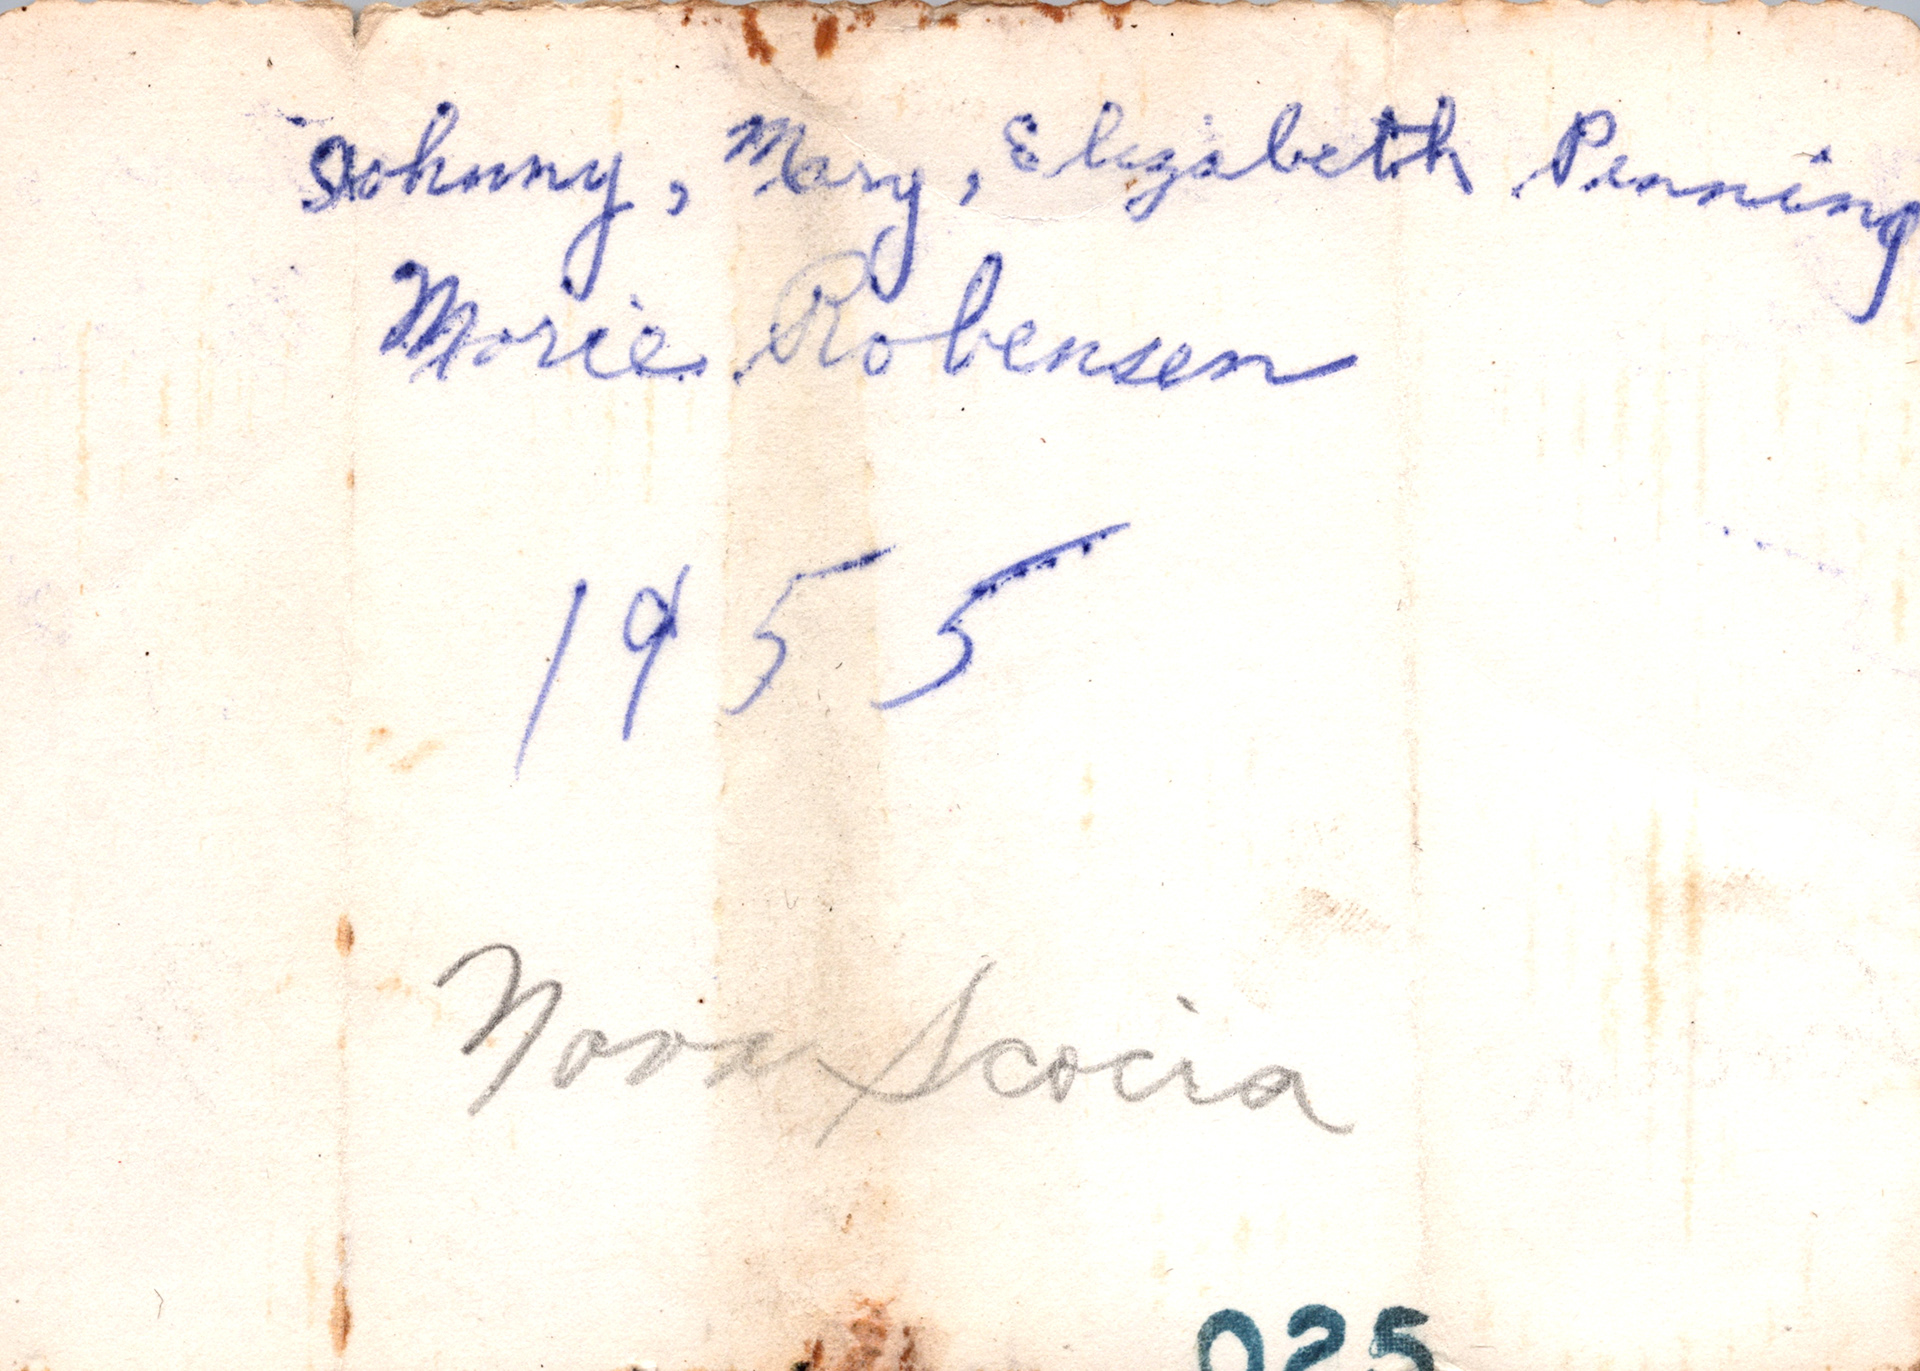 Johnny, Mary, Elizabeth Penning
Marie Robensen
1955
Nova Scocia
025